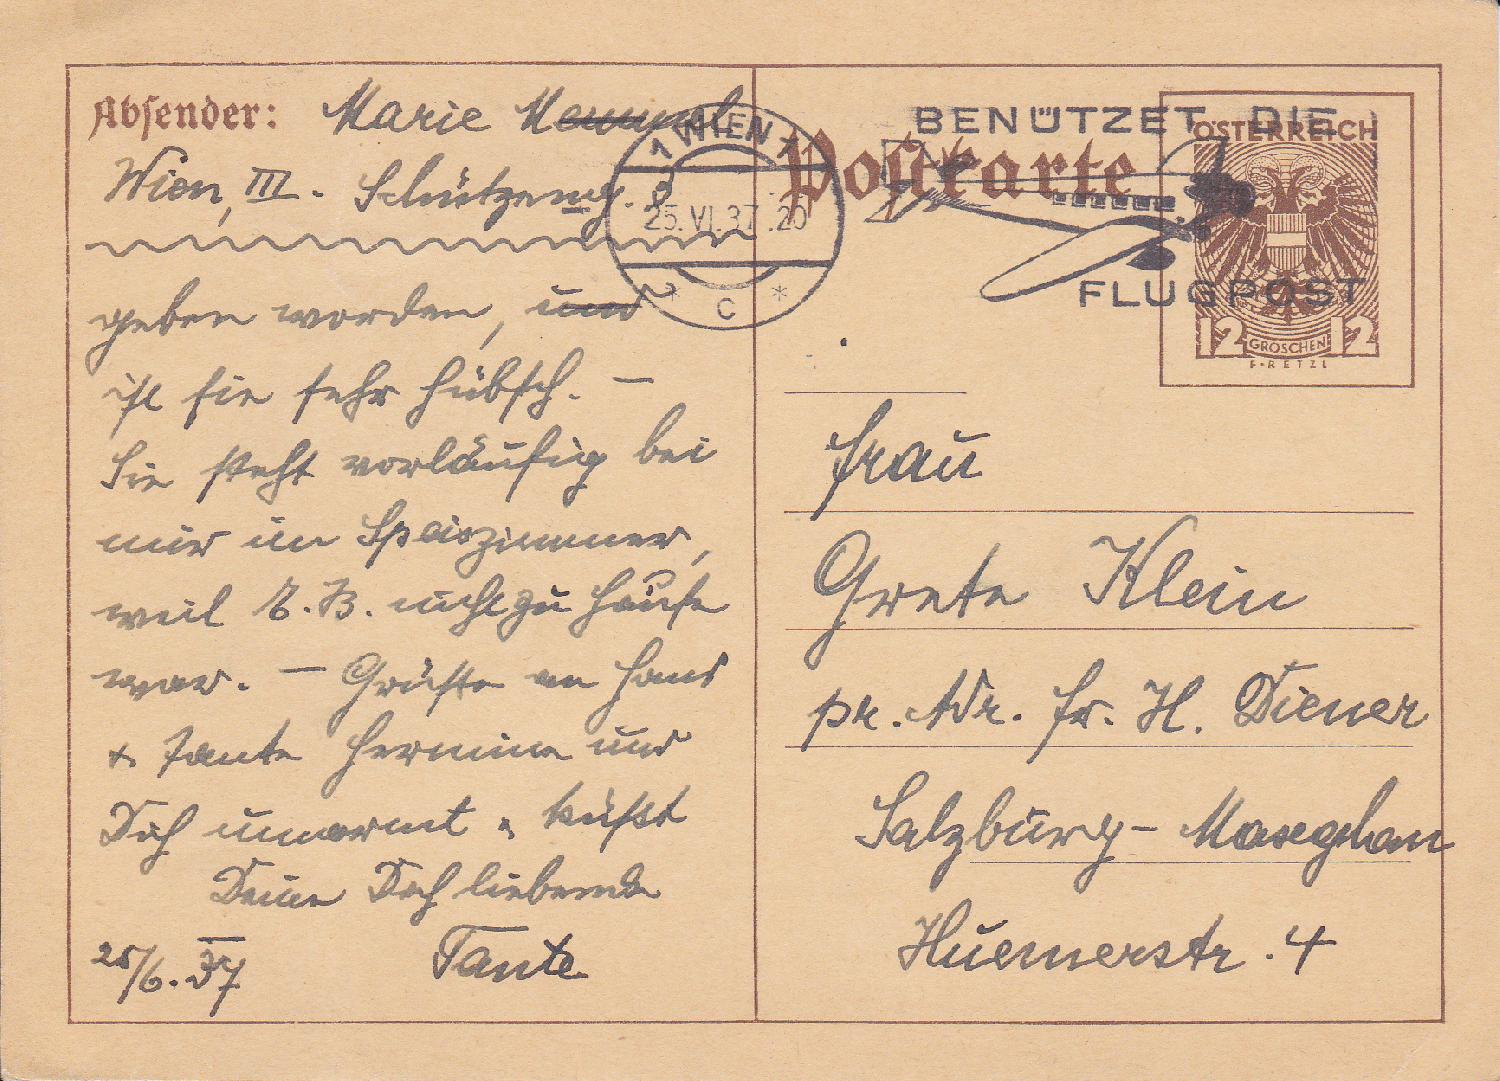 Absender: Marie
Wien, III. Schützeng.
geben worden, und
ist sie sehr hübsch. —
Sie steht vorläufig bei
mir im Speiszimmer,
weil E. B. nicht zu Hause
war. — Grüsse an Hans
+ Tante Hermine und
Dich umarmt u. küsst
Deine Dich liebende
Tante
25/6. 37
1 WIEN 1
25. VI. 37 .20
* C *
BENÜTZET DIE
FLUGPOST
Postkarte
ÖSTERREICH
12 GROSCHEN 12
F·RETZL
Frau
Grete Klein
pr. Adr. Fr. H. Diener
Salzburg - Maxglan
Huemerstr. 4